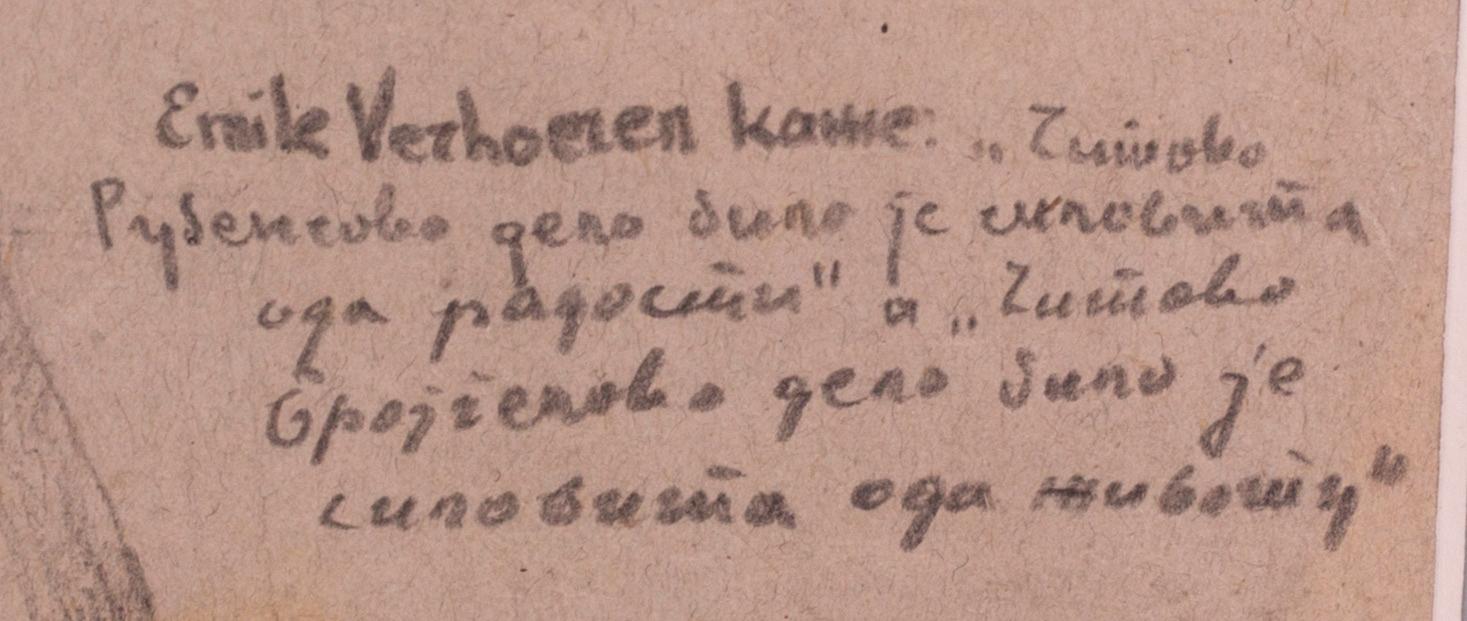 Emile Verhaeren каже: „Читаво
Рубенсово дело било је силовита
ода радости" а „Читаво
Бројгелово дело било је
силовита ода животу"